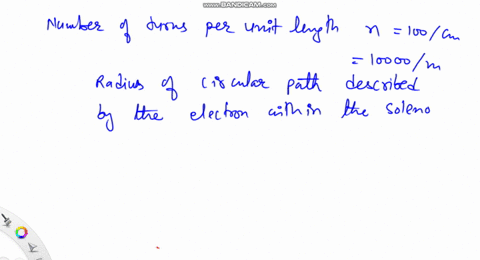 WWW.BANDICAM.COM
Number of turns per unit length n = 100/cm
= 10000/m
Radius of circular path described
by the electron within the soleno